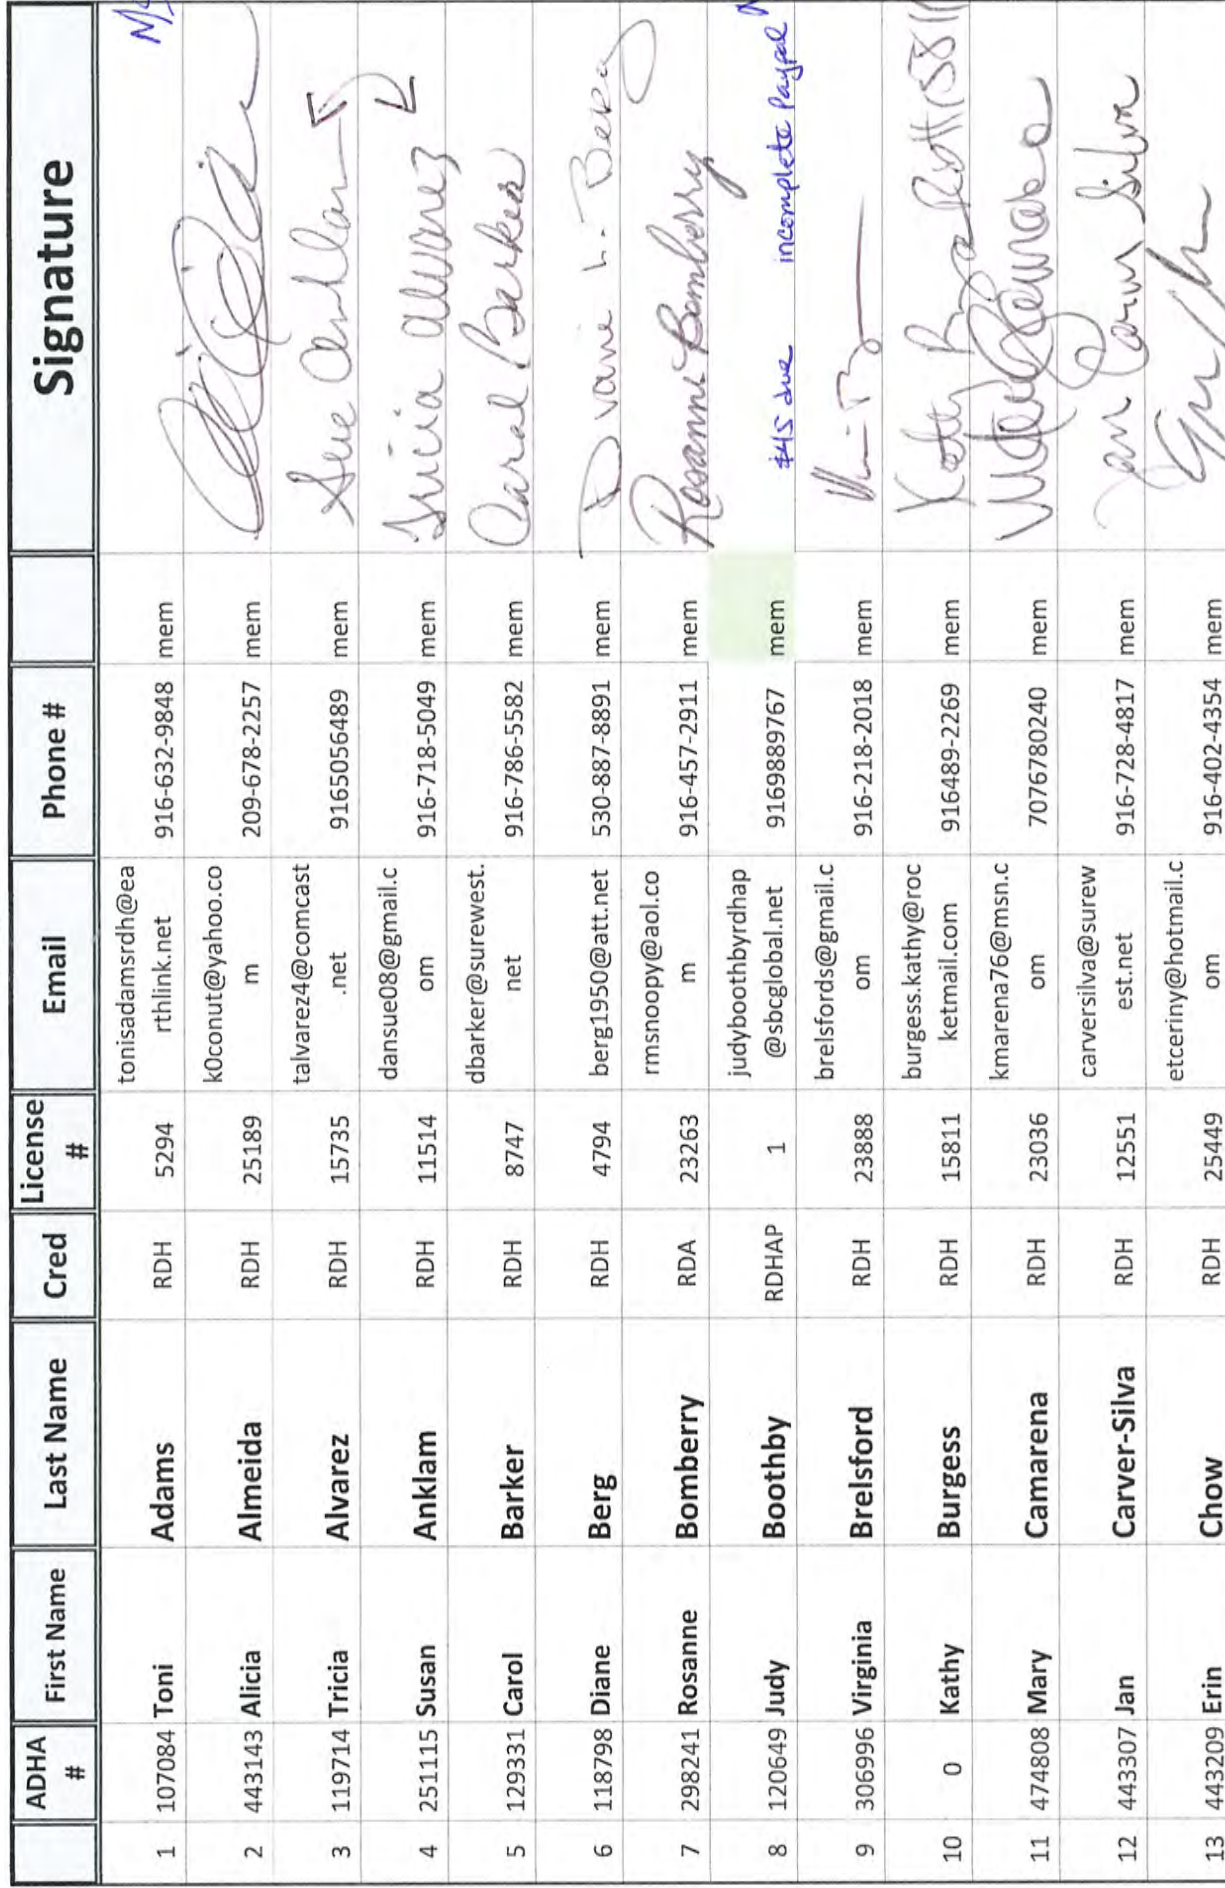 ADHA # First Name Last Name Cred License # Email Phone # Signature
1 107084 Toni Adams RDH 5294 tonisadamsrdh@ea
rthlink.net 916-632-9848 mem
2 443143 Alicia Almeida RDH 25189 k0conut@yahoo.co
m 209-678-2257 mem
3 119714 Tricia Alvarez RDH 15735 talvarez4@comcast
.net 9165056489 mem Sue Anklam
4 251115 Susan Anklam RDH 11514 dansue08@gmail.c
om 916-718-5049 mem Tricia Alvarez
5 129331 Carol Barker RDH 8747 dbarker@surewest.
net 916-786-5582 mem Carol Barker
6 118798 Diane Berg RDH 4794 berg1950@att.net 530-887-8891 mem Diane L. Berg
7 298241 Rosanne Bomberry RDA 23263 rmsnoopy@aol.co
m 916-457-2911 mem Rosanne Bomberry
8 120649 Judy Boothby RDHAP 1 judyboothbyrdhap
@sbcglobal.net 9169889767 mem $45 due incomplete Paypal
9 306996 Virginia Brelsford RDH 23888 brelsfords@gmail.c
om 916-218-2018 mem
10 0 Kathy Burgess RDH 15811 burgess.kathy@roc
ketmail.com 916489-2269 mem Kathy
11 474808 Mary Camarena RDH 23036 kmarena76@msn.c
om 7076780240 mem
12 443307 Jan Carver-Silva RDH 12551 carversilva@surew
est.net 916-728-4817 mem Jan Carver Silva
13 443209 Erin Chow RDH 25449 etceriny@hotmail.c
om 916-402-4354 mem